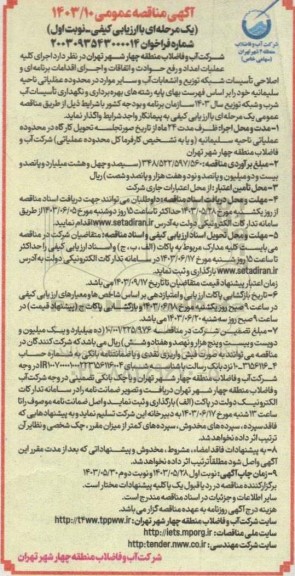 آگهی مناقصه عمومی ۱۴۰۳/۱۰
(یک مرحله‌ای با ارزیابی کیفی-نوبت اول)
شماره فراخوان ۲۰۰۳۰۹۳۵۴۳۰۰۰۰۱۴
شرکت آب و فاضلاب
منطقه ۴ شهر تهران
(سهامی خاص)
شرکت آب و فاضلاب منطقه چهار شهر تهران در نظر دارد اجرای کلیه
عملیات امداد و رفع حوادث و اتفاقات و اجرای اقدامات برنامه‌ای و
اصلاحی تأسیسات شبکه توزیع و انشعابات آب و سایر موارد در محدوده عملیاتی ناحیه
سلیمانیه خود را بر اساس فهرست بهای پایه رشته های بهره‌برداری و نگهداری تأسیسات آب
شرب و شبکه توزیع سال ۱۴۰۳ سازمان برنامه و بودجه کشور با شرایط ذیل از طریق مناقصه
عمومی یک مرحله‌ای با ارزیابی کیفی به پیمانکار واجد شرایط واگذار نماید.
۱- مدت و محل اجرا: ظرف مدت ۲۴ ماه از تاریخ صورتجلسه تحویل کارگاه در محدوده
عملیاتی ناحیه سلیمانیه (و یا به تشخیص کارفرما کل محدوده عملیاتی) شرکت آب و
فاضلاب منطقه چهار شهر تهران
۲- مبلغ برآوردی مناقصه: (سیصد و چهل و هشت میلیارد و پانصد و
بیست و دو میلیون و پانصد و نود و هفت هزار و پانصد و شصت) ریال
۳- محل تأمین اعتبار: از محل اعتبارات جاری شرکت
۴- مهلت و محل دریافت اسناد مناقصه: داوطلبان می توانند جهت دریافت اسناد مناقصه
از روز یکشنبه مورخ ۱۴۰۳/۰۵/۲۸ حداکثر تا ساعت ۱۵ روز دوشنبه مورخ ۱۴۰۳/۰۶/۰۵ از طریق
سامانه تدارکات الکترونیکی دولت به آدرس www.setadiran.ir اقدام نمایند.
۵- مهلت و محل تحویل اسناد ارزیابی کیفی و اسناد مناقصه: متقاضیان شرکت در مناقصه
می بایست کلیه مدارک مربوط به پاکات (الف، ب، ج) و اسناد ارزیابی کیفی را حداکثر
تا ساعت ۱۵ روز شنبه مورخ ۱۴۰۳/۰۶/۱۷ در سامانه تدارکات الکترونیکی دولت به آدرس
www.setadiran.ir بارگذاری و ثبت نماید.
زمان اعتبار پیشنهاد قیمت متقاضیان تا تاریخ ۱۴۰۳/۰۹/۱۷ می باشد.
۶- تاریخ بازگشایی پاکات ارزیابی و امتیازدهی بر اساس شاخص ها و معیارهای ارزیابی کیفی
در ساعت ۹ صبح روز یکشنبه مورخ ۱۴۰۳/۰۶/۱۸ و بازگشایی پاکات ج (پیشنهاد قیمت) در
ساعت ۹ صبح روز سه شنبه ۱۴۰۳/۰۶/۲۰ می باشد.
۷- مبلغ تضمین شرکت در مناقصه (ده میلیارد و یک میلیون و
دویست و بیست و پنج هزار و نهصد و هفتاد و شش) ریال می باشد که شرکت کنندگان در
مناقصه می توانند به صورت فیش واریزی نقدی و یا ضمانتنامه بانکی به شماره حساب
نزد بانک رسالت باشناسه شبای در وجه
شرکت آب و فاضلاب منطقه چهار شهر تهران و یا چک بانکی تضمینی در وجه شرکت آب و
فاضلاب منطقه چهار شهر تهران دریافت و تصویر ضمانت نامه را در سامانه تدارکات
الکترونیک دولت در پاکت (الف) بارگذاری و ثبت نمایند و اصل ضمانت نامه موصوف را تا
ساعت ۱۳ شنبه مورخ ۱۴۰۳/۰۶/۱۷ به دبیرخانه این شرکت تسلیم نماید و به پیشنهادهایی که
فاقد سپرده، سپرده های مخدوش، سپرده های کمتر از میزان مقرر، چک شخصی و نظایر آن
ترتیب اثر داده نخواهد شد.
۸- به پیشنهادات فاقد امضاء، مشروط، مخدوش و پیشنهاداتی که بعد از مدت مقرر این
آگهی واصل شود مطلقاً ترتیب اثر داده نخواهد شد.
۹- زمان چاپ آگهی: نوبت اول ۱۴۰۳/۰۵/۲۸ و نوبت دوم ۱۴۰۳/۰۵/۳۰
برگزار کننده مناقصه در رد یا قبول یک یا کلیه پیشنهادات مختار است.
سایر اطلاعات و جزئیات در اسناد مناقصه مندرج است.
هزینه درج آگهی روزنامه به عهده مناقصه گزار می باشد.
شرکت آب و فاضلاب منطقه چهار شهر تهران: http://t4ww.tppww.ir
سایت ملی مناقصات: http://iets.mporg.ir
سایت شرکت مهندسی: http://tender.nww.co.ir
شرکت آب و فاضلاب منطقه چهار شهر تهران